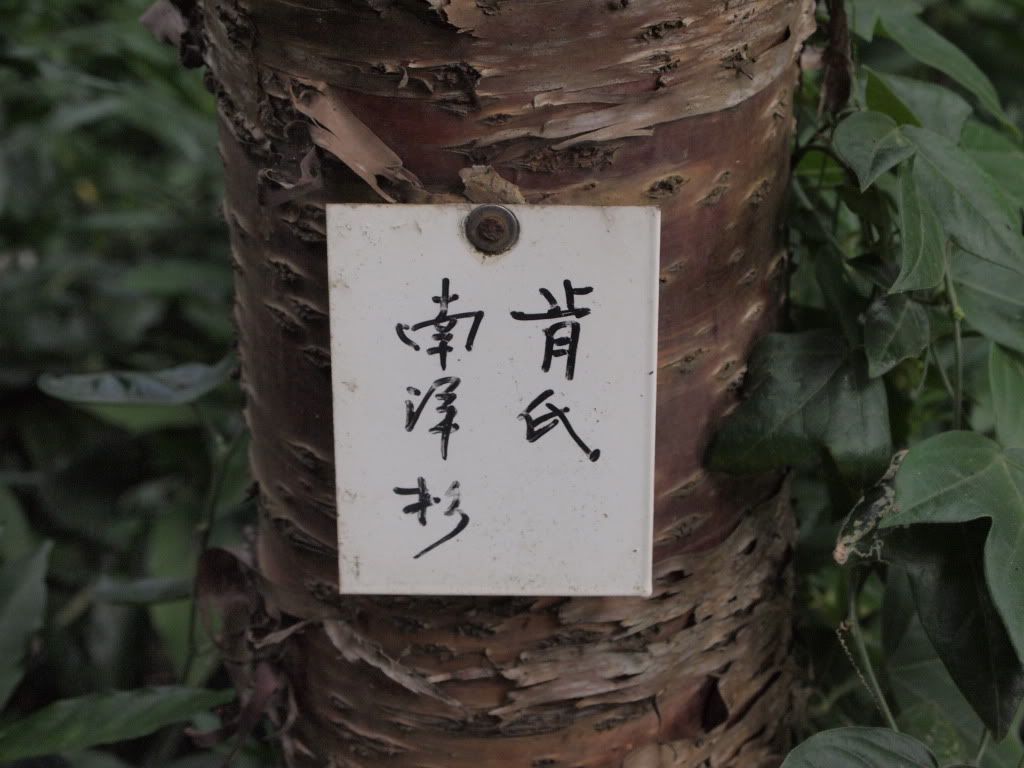 肯氏
南洋杉